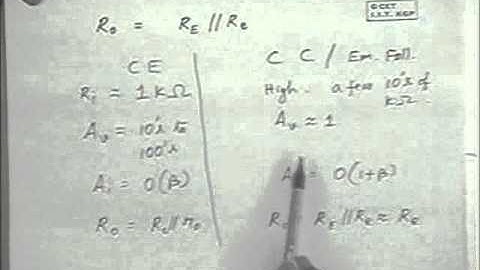 GCET
I.I.T. KGP
Ro = RE // Re
CE
Ri ≈ 1 kΩ
Av = 10's to
100's
Ai = O(β)
Ro = Rc // ro
CC / Em. Foll.
High. a few 10's of
kΩ.
Av ≈ 1
A = O(1+β)
Ro = RE // Re ≈ Re